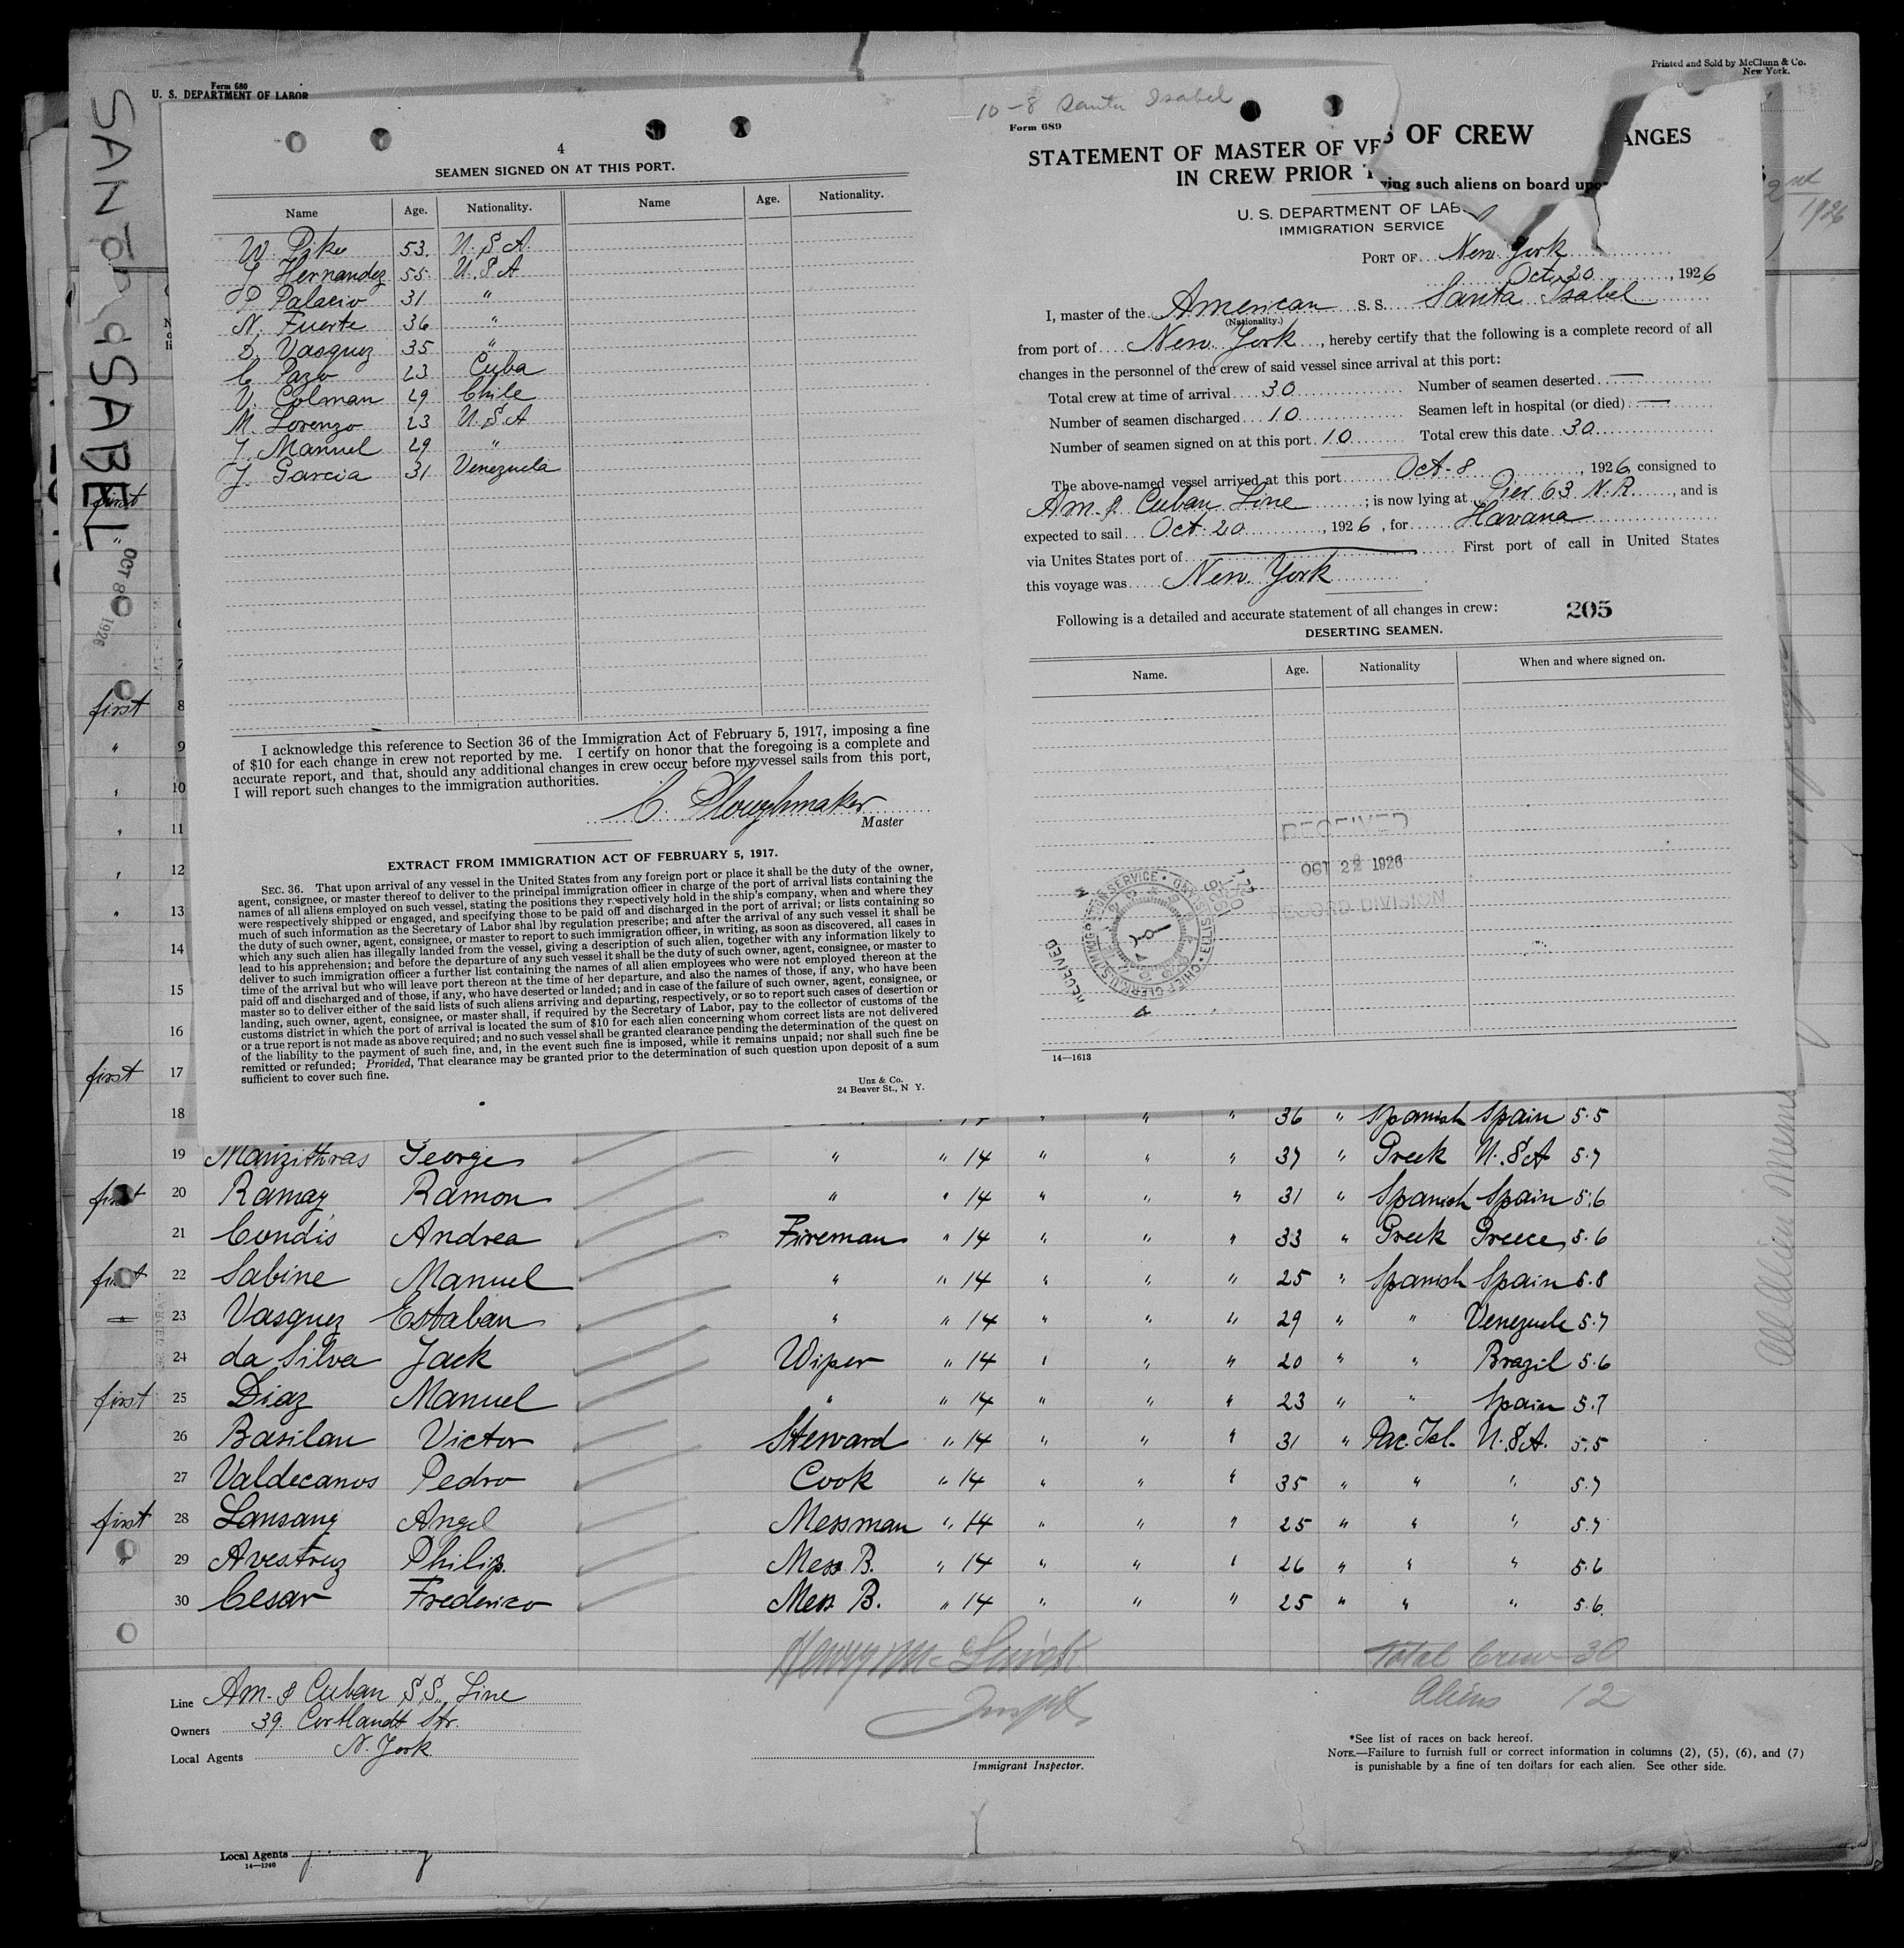 Printed and Sold by McClunn & Co.
New York.
Form 680
U. S. DEPARTMENT OF LABOR
SANTA ISABEL
OCT 8 1926
4
SEAMEN SIGNED ON AT THIS PORT.
Name Age. Nationality. Name Age. Nationality.
W. Pike 53. U.S.A.
J. Hernandez 55. U.S.A
P. Palacio 31 "
N. Fuerte 36 "
S. Vasquez 35 "
C. Pazo 23 Cuba
V. Colman 29 Chile
M. Lorenzo 23 U.S.A
J. Manuel 29 "
J. Garcia 31 Venezuela
I acknowledge this reference to Section 36 of the Immigration Act of February 5, 1917, imposing a fine
of $10 for each change in crew not reported by me. I certify on honor that the foregoing is a complete and
accurate report, and that, should any additional changes in crew occur before my vessel sails from this port,
I will report such changes to the immigration authorities.
Master
EXTRACT FROM IMMIGRATION ACT OF FEBRUARY 5, 1917.
SEC. 36. That upon arrival of any vessel in the United States from any foreign port or place it shall be the duty of the owner,
agent, consignee, or master thereof to deliver to the principal immigration officer in charge of the port of arrival lists containing the
names of all aliens employed on such vessel, stating the positions they respectively hold in the ship's company, when and where they
were respectively shipped or engaged, and specifying those to be paid off and discharged in the port of arrival; or lists containing so
much of such information as the Secretary of Labor shal lby regulation prescribe; and after the arrival of any such vessel it shall be
the duty of such owner, agent, consignee, or master to report to such immigration officer, in writing, as soon as discovered, all cases in
which any such alien has illegally landed from the vessel, giving a description of such alien, together with any information likely to
lead to his apprehension; and before the departure of any such vessel it shall be the duty of such owner, agent, consignee, or master to
deliver to such immigration officer a further list containing the names of all alien employees who were not employed thereon at the
time of the arrival but who will leave port thereon at the time of her departure, and also the names of those, if any, who have been
paid off and discharged and of those, if any, who have deserted or landed; and in case of the failure of such owner, agent, consignee, or
master so to deliver either of the said lists of such aliens arriving and departing, respectively, or so to report such cases of desertion or
landing, such owner, agent, consignee, or master shall, if required by the Secretary of Labor, pay to the collector of customs of the
customs district in which the port of arrival is located the sum of $10 for each alien concerning whom correct lists are not delivered
or a true report is not made as above required; and no such vessel shall be granted clearance pending the determination of the quest on
of the liability to the payment of such fine, and, in the event such fine is imposed, while it remains unpaid; nor shall such fine be
remitted or refunded; Provided, That clearance may be granted prior to the determination of such question upon deposit of a sum
sufficient to cover such fine.
Unz & Co.
24 Beaver St., N Y.
10-8 Santa Isabel
Form 689
STATEMENT OF MASTER OF VE S OF CREW ANGES
IN CREW PRIOR T ving such aliens on board upo
U. S. DEPARTMENT OF LAB
IMMIGRATION SERVICE
PORT OF New York
Oct. 20, 1926
I, master of the American S. S. Santa Isabel
(Nationality.)
from port of New York, hereby certify that the following is a complete record of all
changes in the personnel of the crew of said vessel since arrival at this port:
Total crew at time of arrival 30 Number of seamen deserted —
Number of seamen discharged 10 Seamen left in hospital (or died) —
Number of seamen signed on at this port 10 Total crew this date 30
The above-named vessel arrived at this port Oct-8, 1926, consigned to
Am. & Cuban Line ; is now lying at Pier 63 N.R., and is
expected to sail Oct. 20, 1926, for Havana
via Unites States port of — First port of call in United States
this voyage was New York
Following is a detailed and accurate statement of all changes in crew: 205
DESERTING SEAMEN.
Name. Age. Nationality When and where signed on.
RECEIVED
OCT 22 1926
RECORD DIVISION
14—1613
first
first 8
" 9
" 10
" 11
" 12
" 13
14
15
16
first 17
18 36 " Spanish Spain 5.5
19 Manzithras George " " 14 " " " 37 " Greek U.S.A 5.7
first 20 Ramay Ramon " " 14 " " " 31 " Spanish Spain 5.6
21 Condis Andrea Fireman " 14 " " " 33 " Greek Greece 5.6
first 22 Sabine Manuel " " 14 " " " 25 " Spanish Spain 5.8
" 23 Vasquez Estaban " " 14 " " " 29 " " Venezuela 5.7
24 da Silva Jack Wiper " 14 " " " 20 " " Brazil 5.6
first 25 Diaz Manuel " " 14 " " " 23 " " Spain 5.7
26 Basilan Victor Steward " 14 " " " 31 " Pac. Isl. U.S.A. 5.5
27 Valdecanos Pedro Cook " 14 " " " 35 " " " 5.7
first 28 Lansang Angel Messman " 14 " " " 25 " " " 5.7
" 29 Avestruz Philip. Mess B. " 14 " " " 26 " " " 5.6
30 Cesar Frederico Mess B. " 14 " " " 25 " " " 5.6
Total Crew 30
Aliens 12
Line Am. & Cuban S.S. Line
Owners 39 Cortlandt Str.
Local Agents N. York
Immigrant Inspector.
*See list of races on back hereof.
NOTE.—Failure to furnish full or correct information in columns (2), (5), (6), and (7)
is punishable by a fine of ten dollars for each alien. See other side.
Local Agents
14—1240